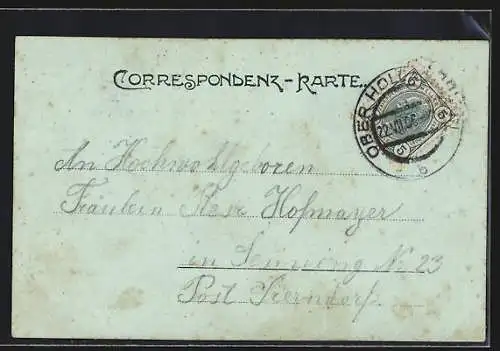 CORRESPONDENZ-KARTE.
OBER HOL
22 VII 06
5 5 5
b
An Hochwohlgeboren
Fräulein Hofmayer
in No 23
Post Sierndorf